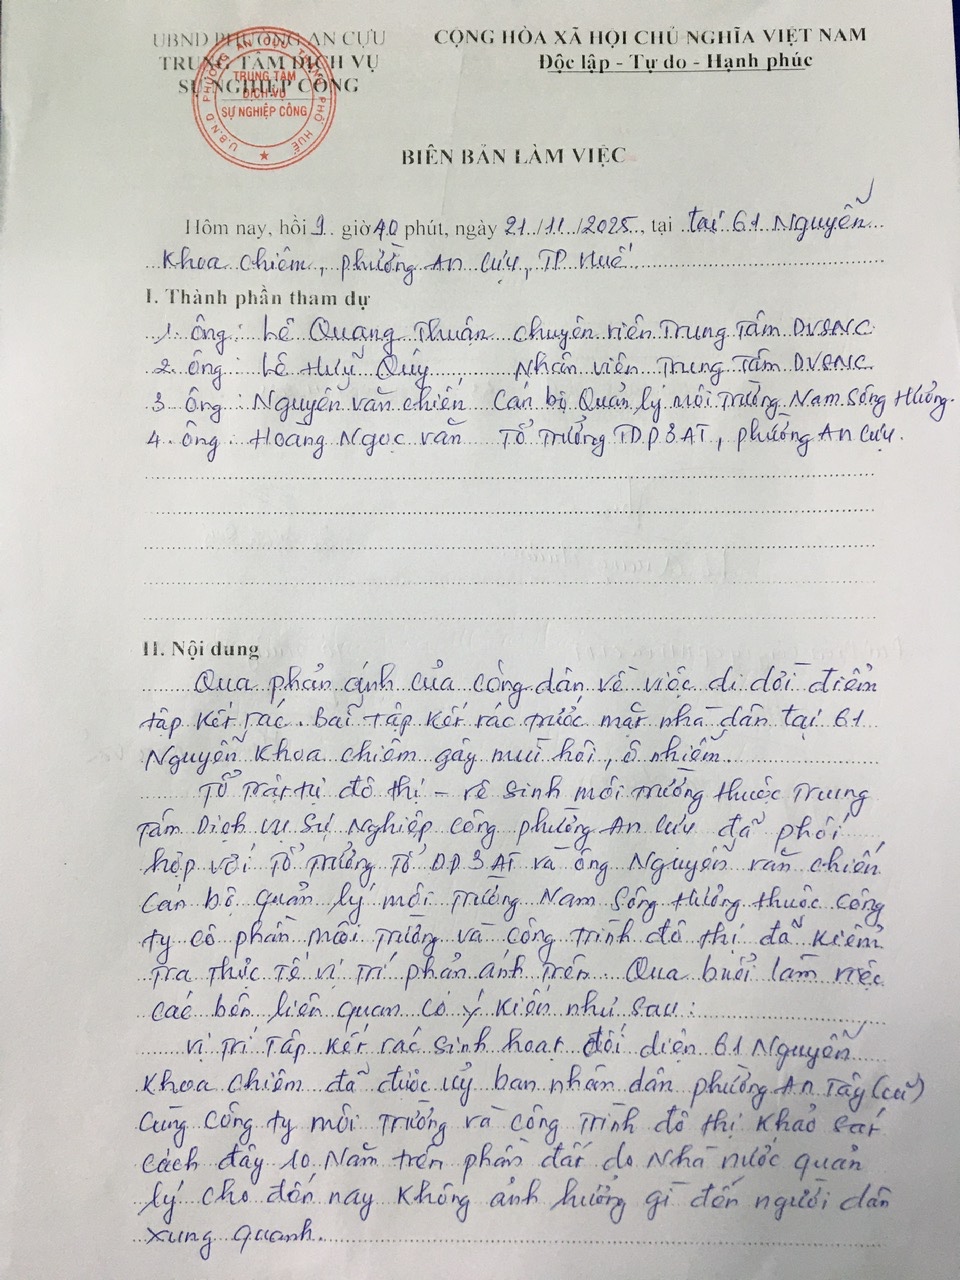 UBND PHƯỜNG AN CỰU
TRUNG TÂM DỊCH VỤ
SỰ NGHIỆP CÔNG
U.B.N.D PHƯỜNG AN CỰU T. PHỐ HUẾ
TRUNG TÂM
DỊCH VỤ
SỰ NGHIỆP CÔNG
CỘNG HÒA XÃ HỘI CHỦ NGHĨA VIỆT NAM
Độc lập - Tự do - Hạnh phúc
BIÊN BẢN LÀM VIỆC
Hôm nay, hồi 9 giờ 40 phút, ngày 21/11/2025, tại tại 61 Nguyễn
Khoa Chiêm, phường An Cựu, TP Huế
I. Thành phần tham dự
1. ông: Lê Quang Thuận chuyên viên Trung Tâm DVSNC
2. ông: Lê Huỹ Quý Nhân viên Trung Tâm DVSNC
3 ông: Nguyễn văn chiến Cán bộ Quản lý môi Trường Nam Sông Hương.
4. ông: Hoàng Ngọc Vấn Tổ Trưởng TDP3AT, phường An Cựu.
II. Nội dung
Qua phản ánh của công dân về việc di dời điểm
tập kết rác. bãi tập kết rác trước mặt nhà dân tại 61
Nguyễn Khoa chiêm gây mùi hôi, ô nhiễm.
Tổ Trật tự đô thị - vệ sinh môi trường thuộc Trung
Tâm Dịch vụ Sự Nghiệp công phường An Cựu đã phối
hợp với Tổ Trưởng Tổ DP3AT và ông Nguyễn văn chiến
Cán bộ quản lý môi Trường Nam Sông Hương thuộc công
ty cổ phần môi Trường và công trình đô thị đã kiểm
Tra thực tế vị trí phản ánh trên. Qua buổi làm việc
các bên liên quan có ý kiến như sau:
vị trí Tập kết rác sinh hoạt đối diện 61 Nguyễn
Khoa chiêm đã được uỷ ban nhân dân phường An Tây (cũ)
Cùng công ty môi Trường và công Trình đô thị khảo sát
cách đây 10 Năm trên phần đất do Nhà nước quản
lý cho đến nay không ảnh hưởng gì đến người dân
xung quanh.